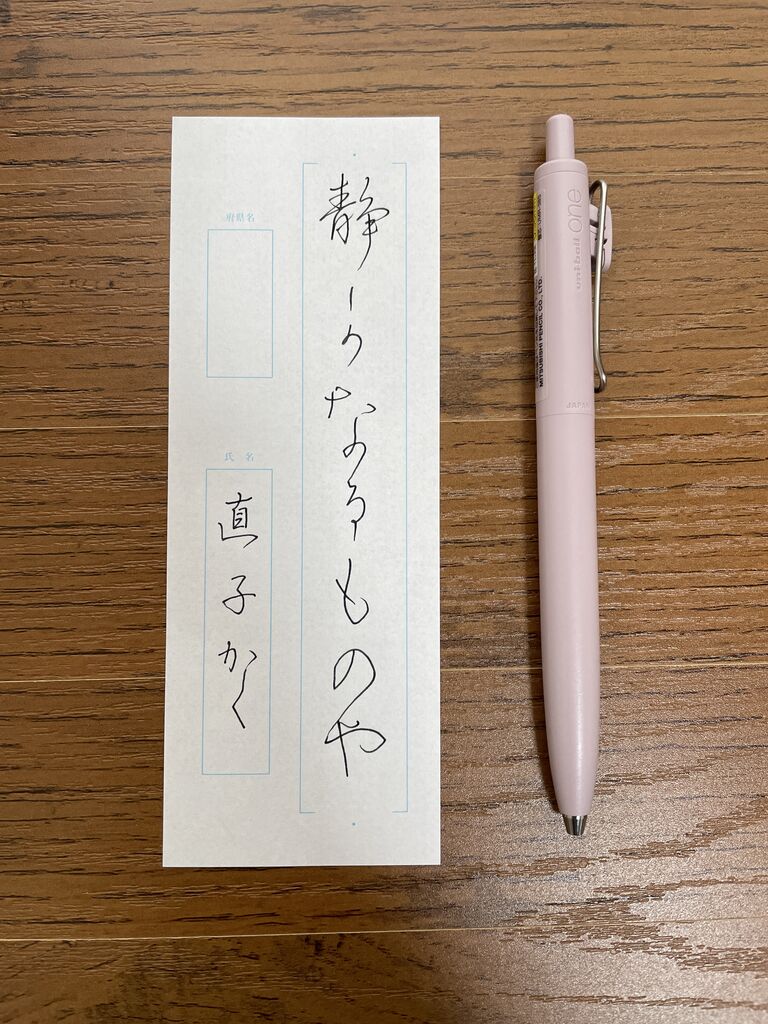 静かなるものや
府県名
氏名
直子かく
uni-ball one
MITSUBISHI PENCIL CO., LTD.
JAPAN